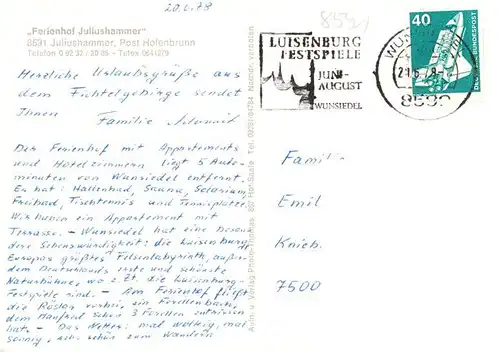 20.6.78
8591
„Ferienhof Juliushammer"
8591 Juliushammer, Post Hofenbrunn
Telefon 0 92 32 / 20 86 - Telex 0641279
Herzliche Urlaubsgrüße aus
dem Fichtelgebirge sendet
Ihnen
Familie
Der Ferienhof mit Appartements
und Hotelzimmern liegt 5 Auto-
minuten von Wunsiedel entfernt.
Er hat: Hallenbad, Sauna, Solarium,
Freibad, Tischtennis und Tennisplätze.
Wir haben ein Appartement mit
Terrasse. - Wunsiedel hat eine beson
dere Sehenswürdigkeit: die Luisenburg
Europas größtes Felsenlabyrinth, außer-
dem Deutschlands erste und schönste
Naturbühne, wo z. Zt. die Luisenburg-
Festspiele sind. - Am Ferienhof fließt
die Röslau vorbei, ein Forellenbach,
dem Manfred schon 3 Forellen entrissen
hat. - Das Wetter: mal wolkig, mal
sonnig, also schön zum Wandern
LUISENBURG
FESTSPIELE
JUNI-
AUGUST
WUNSIEDEL
40
DEUTSCHE BUNDESPOST
Familie
Emil
Knieb.
7500